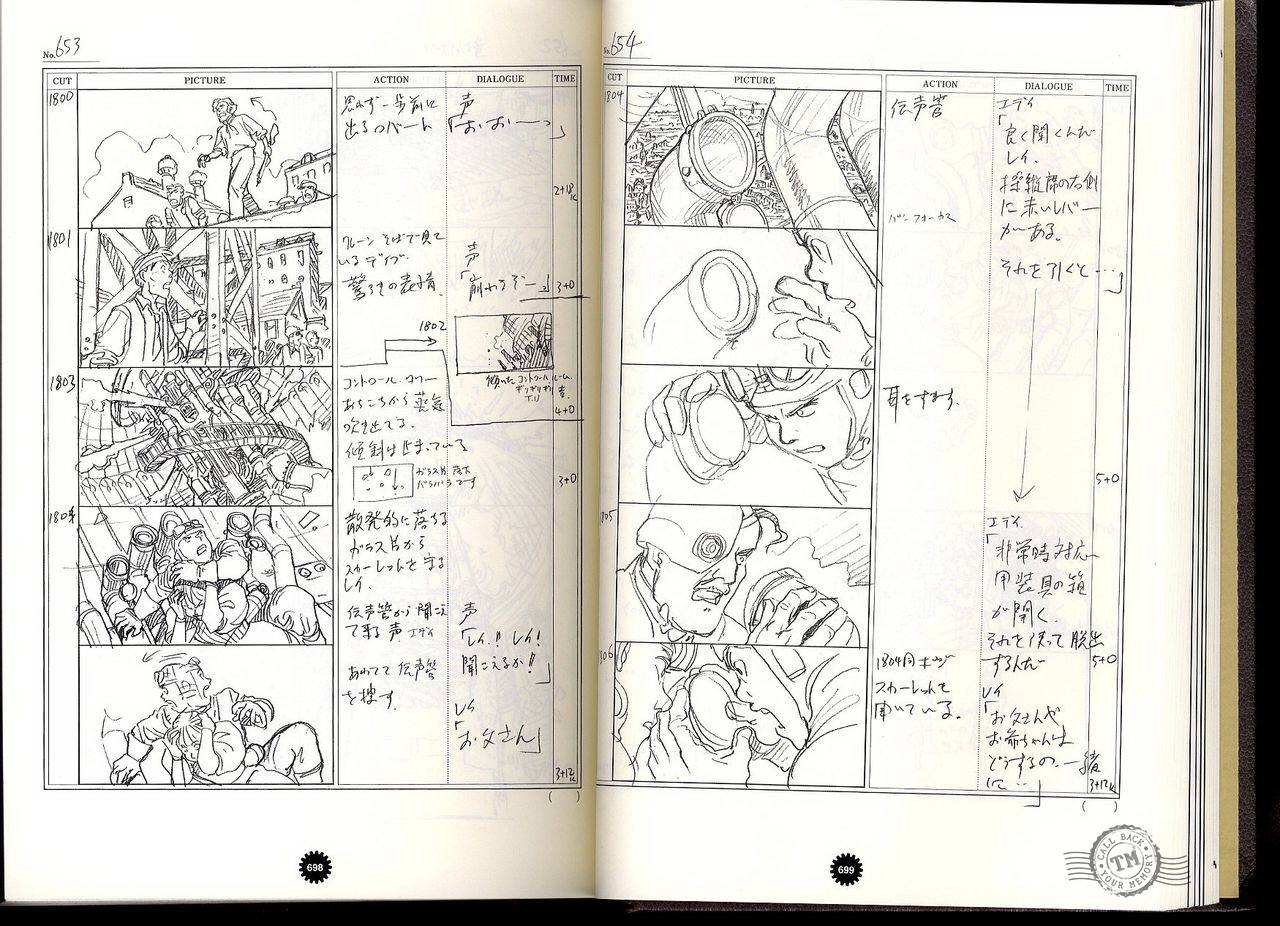 No.653
CUT PICTURE ACTION DIALOGUE TIME
1800
思わず一歩前に
出るロバート
声
「おぉおー…っ」
2+18K
1801
クレーン そばで見て
いるデイブ.
驚きの表情.
声
「崩れるぞー」
3+0
1802
傾いた コントロール ルーム
4+0
1803
コントロール・タワー
あちこちから 蒸気
吹き出てる.
傾斜は止まっている
ガラス片 落下
パラパラです
3+0
1804
散発的に落ちる
ガラス片から
スカーレットを守る
レイ.
伝声管から聞こえ
て来る 声 エディ
声
「レイ!! レイ!
聞こえるか!!」
あわてて 伝声管
を捜す.
レイ
「お父さん」
3+12K
( )
698
No.654
CUT PICTURE ACTION DIALOGUE TIME
1804
伝声管
パンフォーカス
エディ
「良く聞くんだ
レイ.
操縦席の右側
に赤いレバー
がある.
それを引くと…」
耳をすます.
5+0
1805
エディ
「非常時対応
用装具の箱
が開く.
それを使って脱出
するんだ
5+0
1806
1804同ポジ
スカーレットも
聞いている。
レイ
「お父さんや
お爺ちゃんは
どうするの. 一緒
に…」
3+12K
( )
699
CALL BACK
TM
YOUR MEMORY